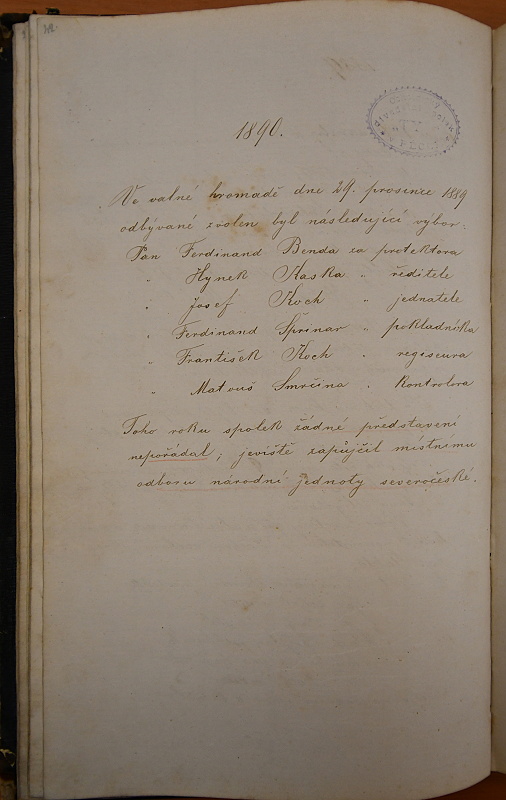 1890.
Ve valné hromadě dne 29. prosince 1889
odbývané zvolen byl následující výbor:
Pan Ferdinand Benda za protektora
" Hynek Kaska " ředitele
" Josef Koch " jednatele
" Ferdinand Šprinar " pokladníka
" František Koch " regiseura
" Matouš Smrčina " kontrolora
Toho roku spolek žádné představení
nepořádal; jeviště zapůjčil místnímu
odboru národní jednoty severočeské.